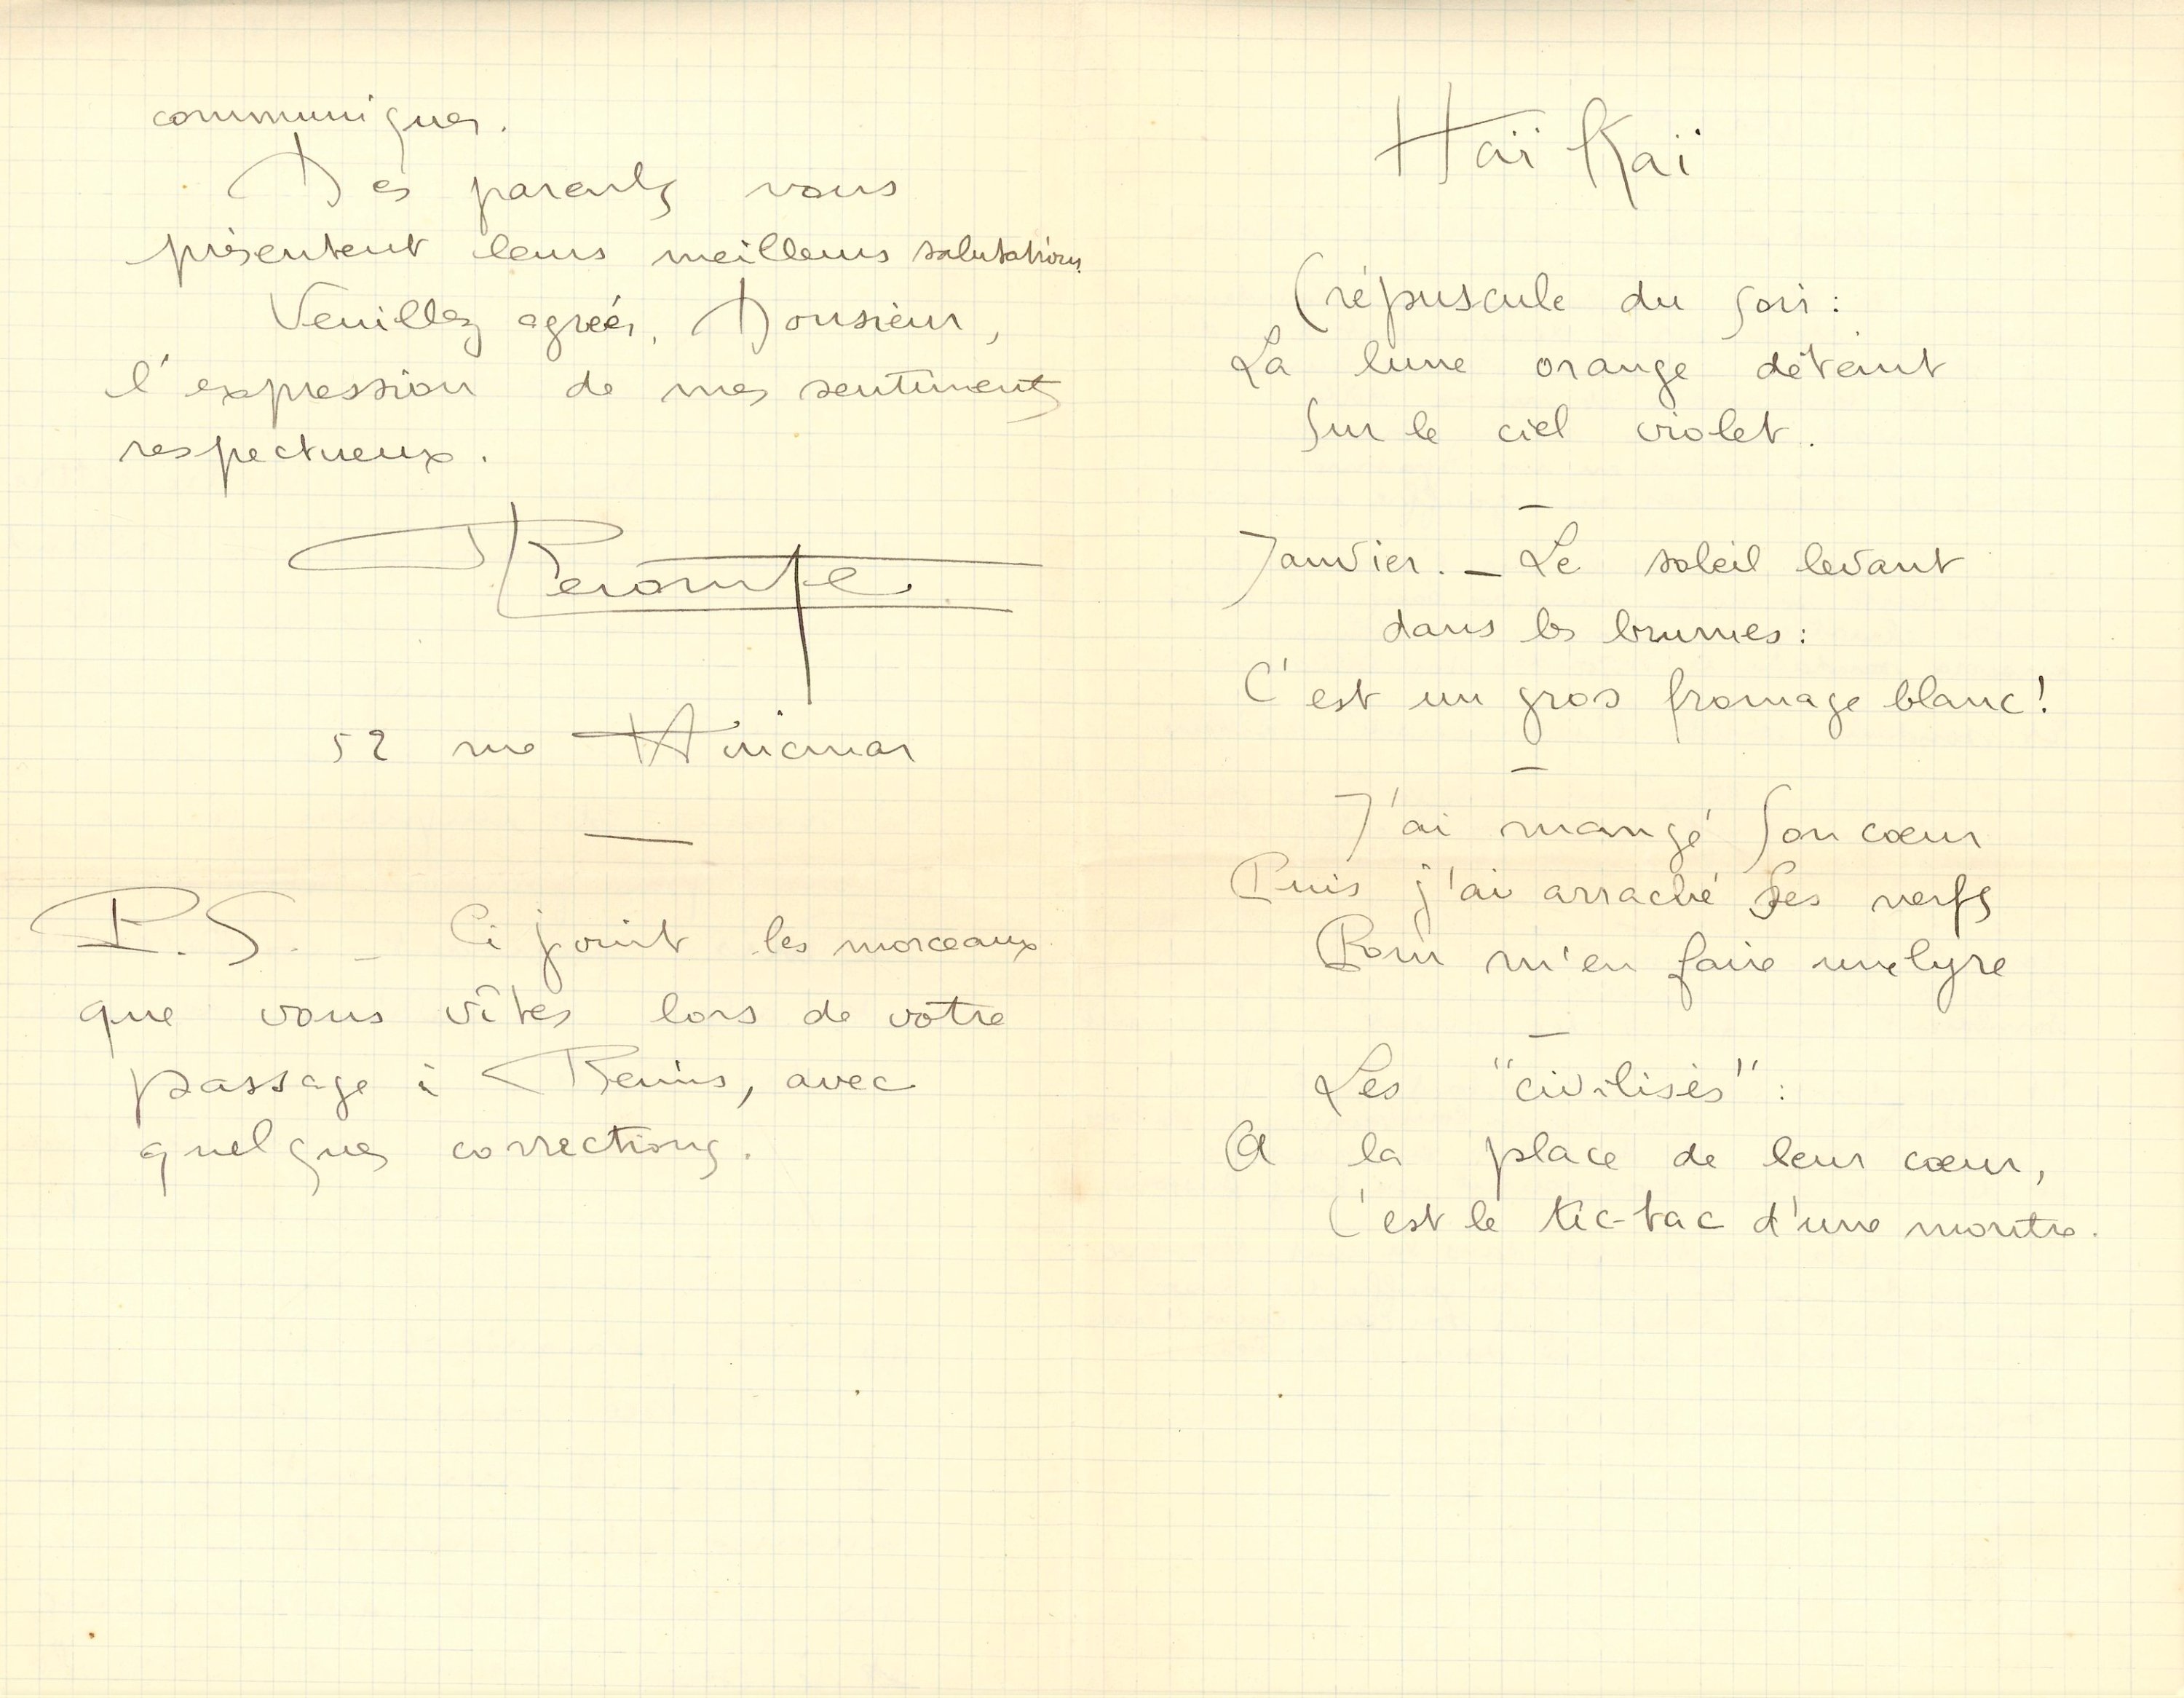 communiquer.
Mes parents vous
présentent leurs meilleurs salutations.
Veuillez agréer, Monsieur,
l'expression de mes sentiments
respectueux.
RLecomte
52 rue Hincmar
P.S. - Ci joint les morceaux
que vous vîtes lors de votre
passage à Reims, avec
quelques corrections.
Haï Kaï
Crépuscule du soir :
La lune orange déteint
Sur le ciel violet.
Janvier. - Le soleil levant
dans les brumes :
C'est un gros fromage blanc !
J'ai mangé son cœur
Puis j'ai arraché ses nerfs
Pour m'en faire une lyre
Les "civilisés" :
A la place de leur cœur,
C'est le tic-tac d'une montre.